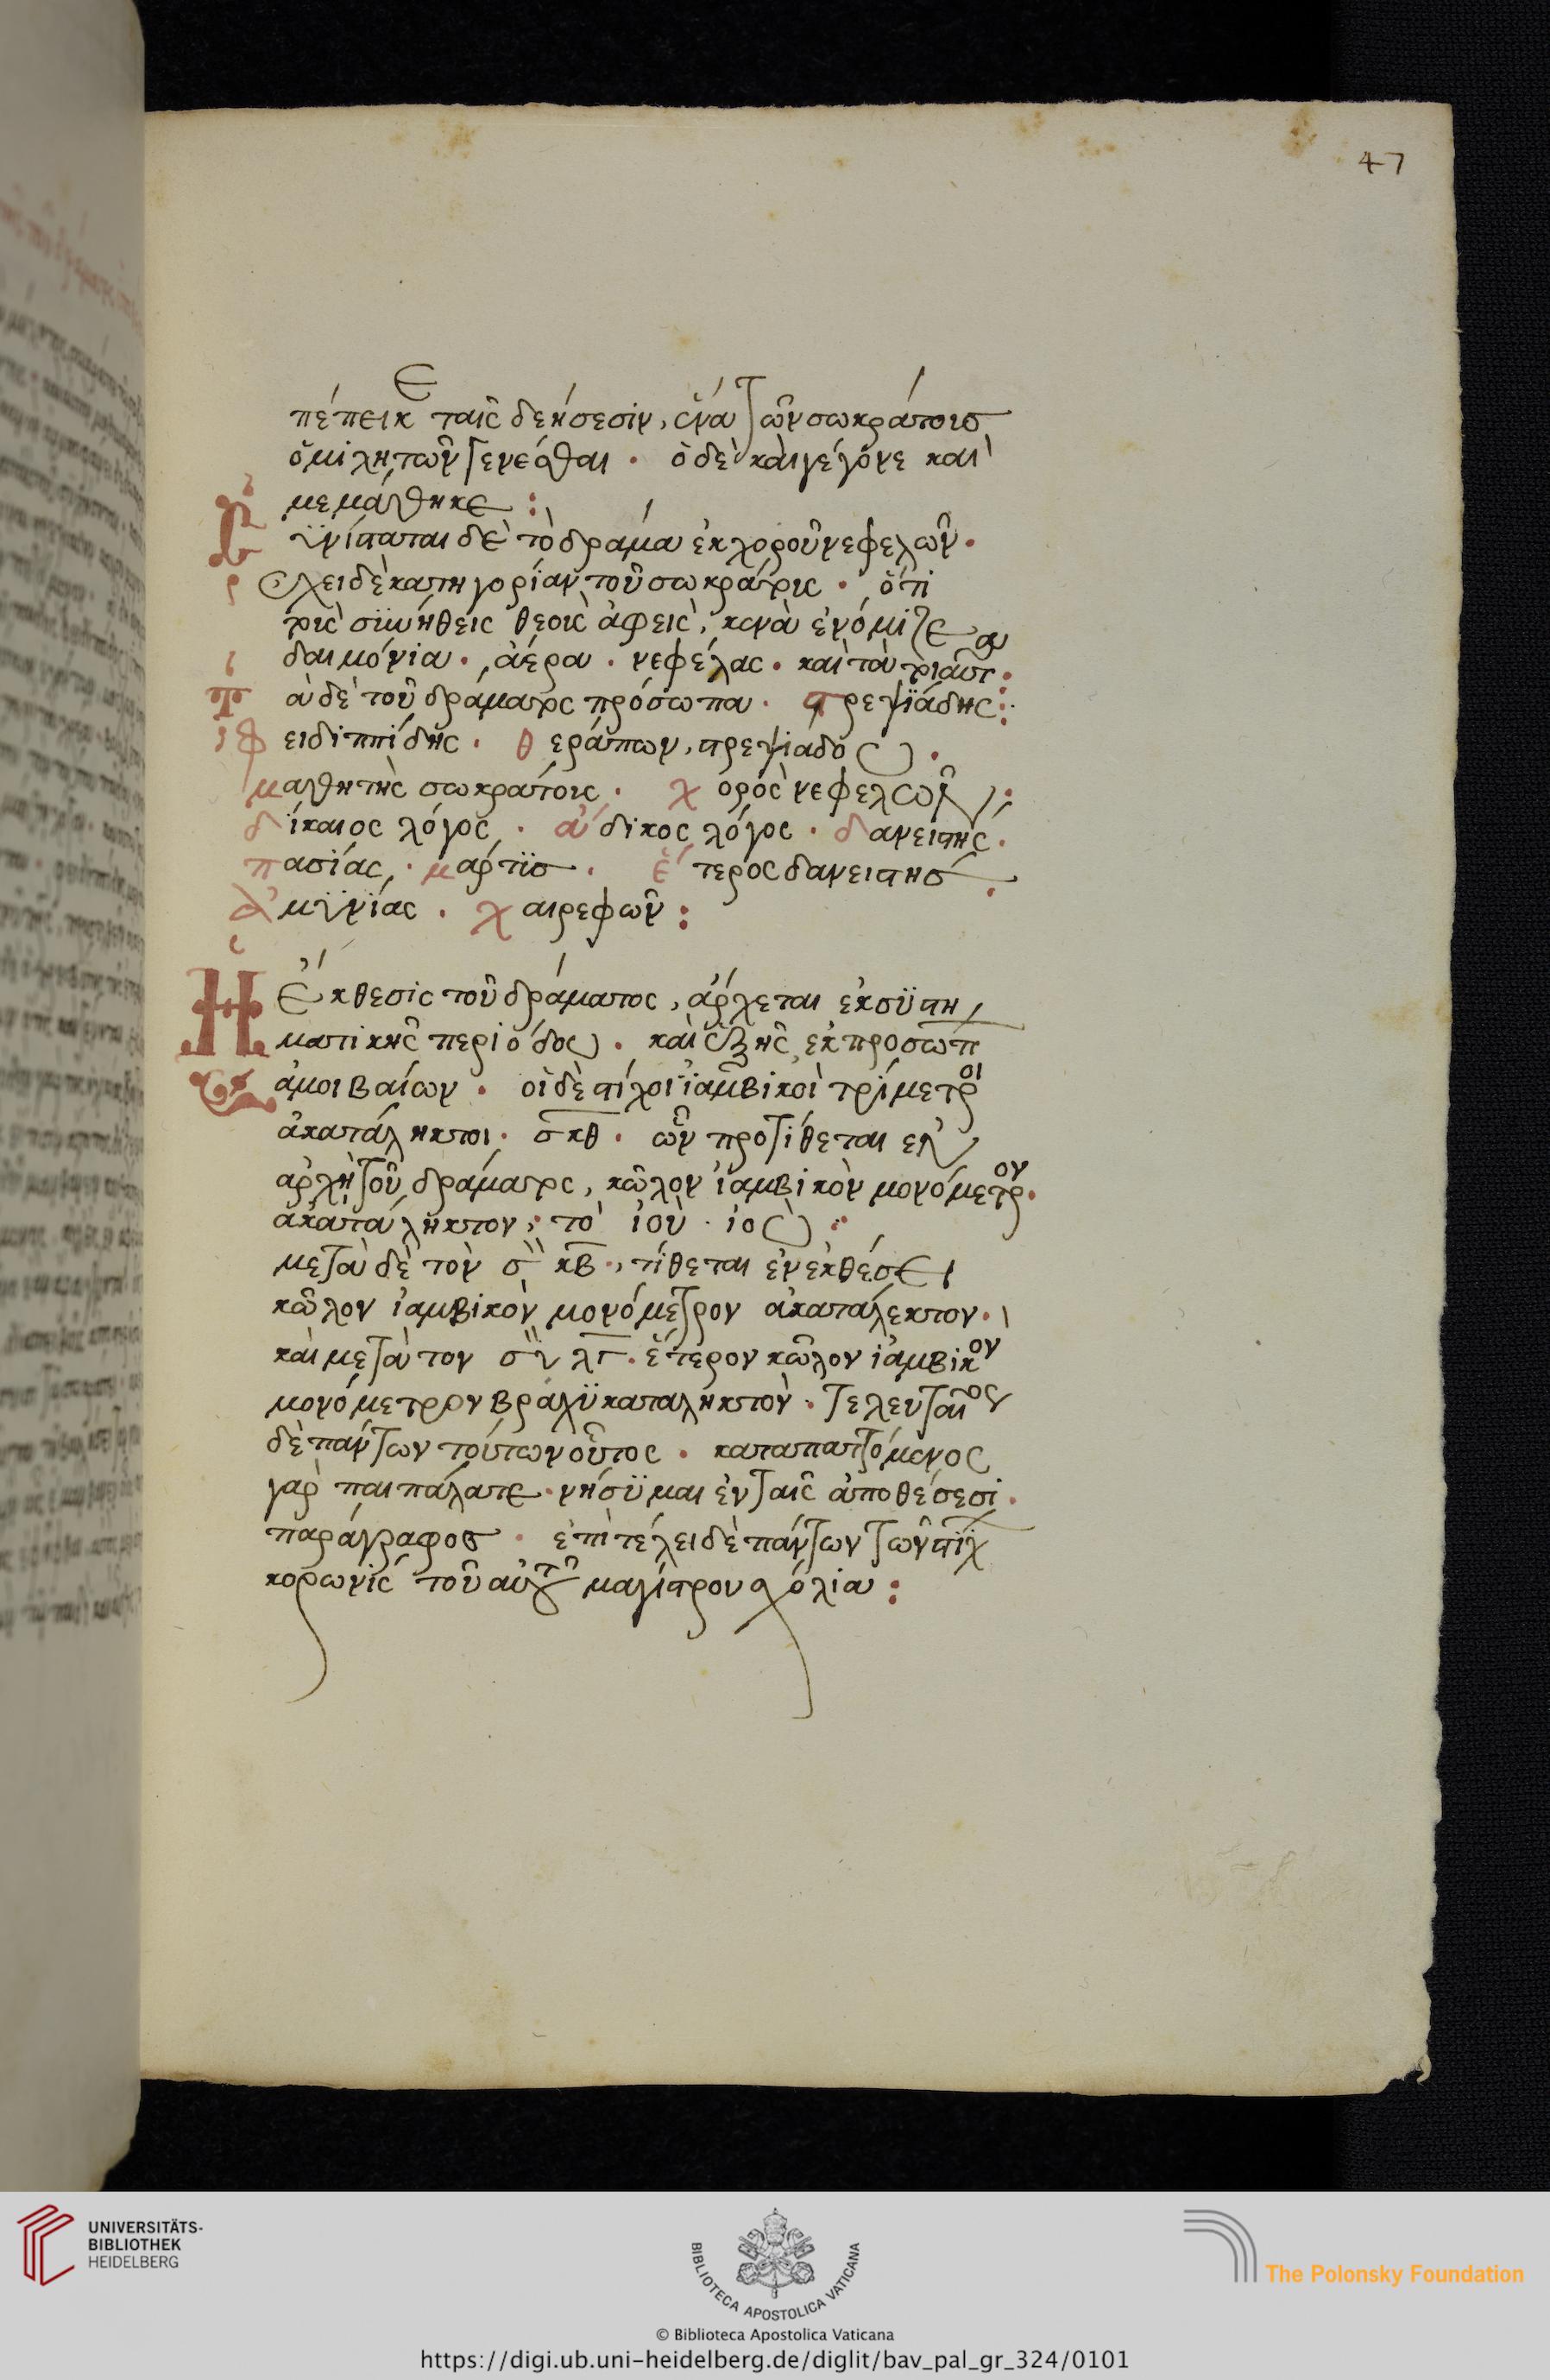 47
πέπεικε ταῖς δεήσεσιν, ἵνα τῶν σωκράτους
ὁμιλητῶν γενέσθαι. ὁ δὲ καὶ γέγονε καὶ
μεμάθηκε:
Συνίσταται δὲ τὸ δράμα ἐκ χοροῦ νεφελῶν.
ἔχει δὲ κατηγορίαν τοῦ σωκράτους. ὅτι
τοὺς συνήθεις θεοὺς ἀφεὶς, καινὰ ἐνόμιζε
δαιμόνια. ἀέρα. νεφέλας. καὶ τὰ τοιαῦτα.
τὰ δὲ τοῦ δράματος πρόσωπα. στρεψιάδης:
φειδιππίδης. θεράπων στρεψιάδου.
μαθητὴς σωκράτους. χορὸς νεφελῶν:
δίκαιος λόγος. ἄδικος λόγος. δανειστής.
πασίας. μάρτυς. ἕτερος δανειστής.
ἀμυνίας. χαιρεφῶν:
Ἡ ἔκθεσις τοῦ δράματος, ἄρχεται ἐκ συστη
ματικῆς περιόδου. καὶ ἑξῆς ἐκ προσώπ
ἀμοιβαίων. οἱ δὲ στίχοι ἰαμβικοὶ τρίμετροι
ἀκατάληκτοι. σκθ. ὧν προτίθεται ἐν
ἀρχῇ τοῦ δράματος, κῶλον ἰαμβικὸν μονόμετρον.
ἀκατάληκτον. τὸ ἰοὺ. ἰού:
μετὰ δὲ τὸν σκβ, τίθεται ἐν ἐκθέσει
κῶλον ἰαμβικὸν μονόμετρον ἀκατάλεκτον.
καὶ μετὰ τὸν λγ. ἕτερον κῶλον ἰαμβικον
μονόμετρον βραχυκατάληκτον. τελευταῖος
δὲ πάντων τούτων οὗτος. καταπαττόμενος
γὰρ παιπάλη γενήσομαι ἐν ταῖς ἀποθέσεσι.
παράγραφος. ἐπὶ τέλει δὲ πάντων τῶν στίχ
κορωνίς τοῦ αὐτοῦ μαγίστρου σχόλια:
UNIVERSITÄTS-
BIBLIOTHEK
HEIDELBERG
BIBLIOTECA APOSTOLICA VATICANA
The Polonsky Foundation
© Biblioteca Apostolica Vaticana
https://digi.ub.uni-heidelberg.de/diglit/bav_pal_gr_324/0101